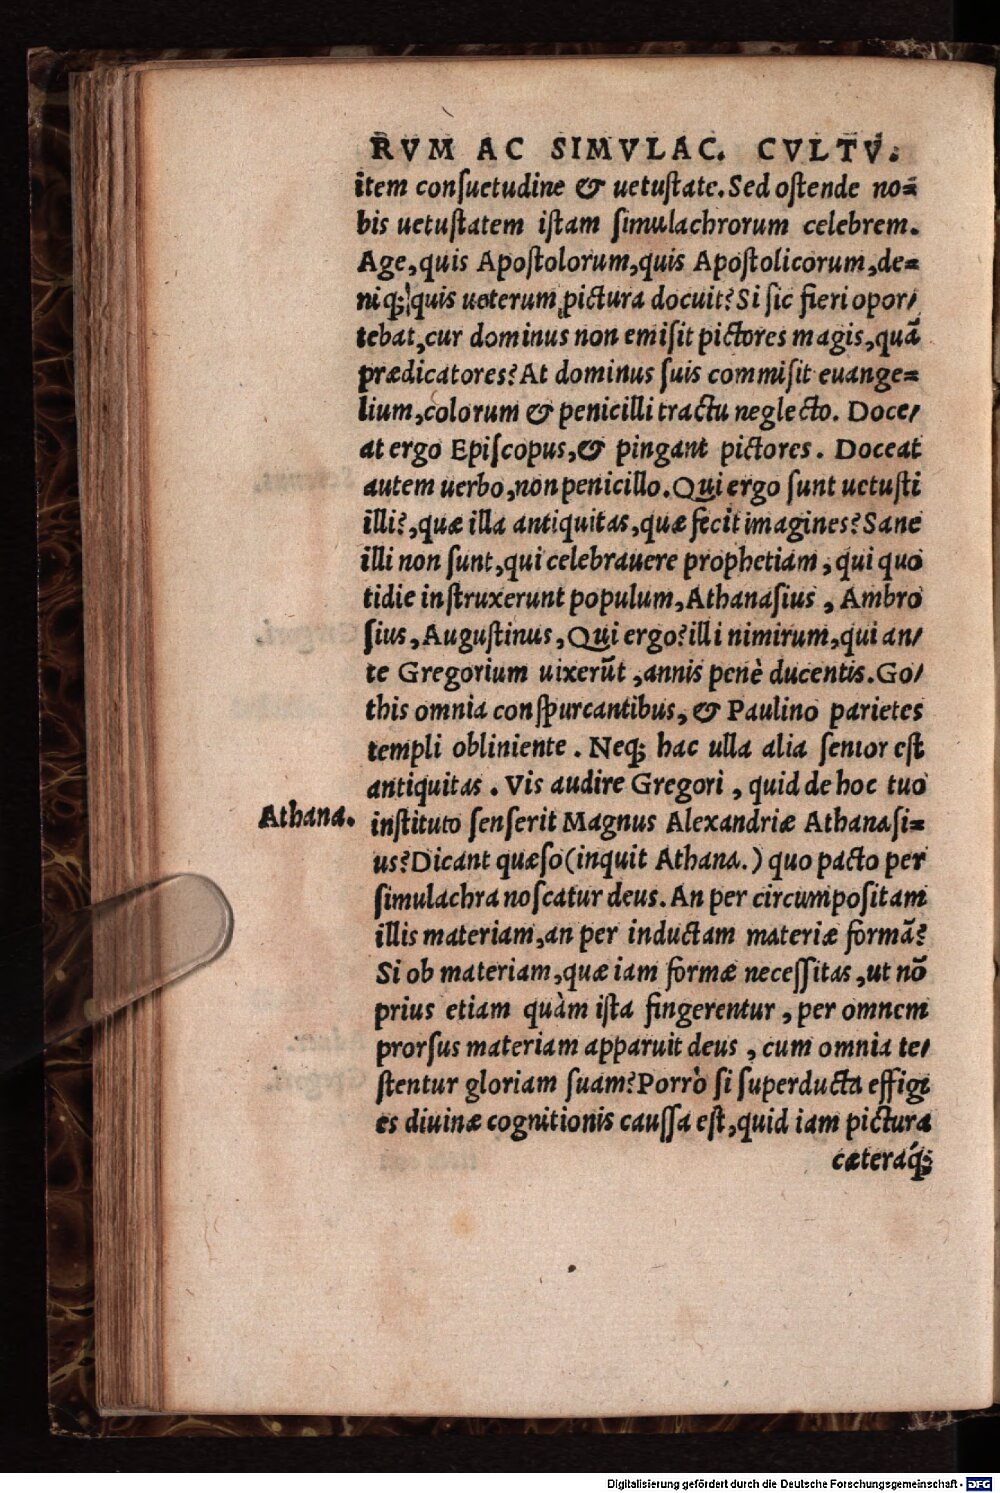 RVM AC SIMVLAC. CVLTV.
item conſuetudine & uetuſtate. Sed oſtende no=
bis uetuſtatem iſtam ſimulachrorum celebrem.
Age, quis Apoſtolorum, quis Apoſtolicorum, de=
niq; quis ueterum pictura docuit? Si ſic fieri opor/
tebat, cur dominus non emiſit pictores magis, quā
prædicatores? At dominus ſuis commiſit euange=
lium, colorum & penicilli tractu neglecto. Doce/
at ergo Epiſcopus, & pingant pictores. Doceat
autem uerbo, non penicillo. Qui ergo ſunt uetuſti
illi?, quæ illa antiquitas, quæ fecit imagines? Sane
illi non ſunt, qui celebrauere prophetiam, qui quo
tidie inſtruxerunt populum, Athanaſius, Ambro
ſius, Auguſtinus, Qui ergo? illi nimirum, qui an/
te Gregorium uixerūt, annis penè ducentis. Go/
this omnia conſpurcantibus, & Paulino parietes
templi obliniente. Neq; hac ulla alia ſenior eſt
antiquitas. Vis audire Gregori, quid de hoc tuo
Athana.
inſtituto ſenſerit Magnus Alexandriæ Athanaſi=
us? Dicant quæſo (inquit Athana.) quo pacto per
ſimulachra noſcatur deus. An per circumpoſitam
illis materiam, an per inductam materiæ formā?
Si ob materiam, quæ iam formæ neceſſitas, ut nō
prius etiam quàm iſta fingerentur, per omnem
prorſus materiam apparuit deus, cum omnia te/
ſtentur gloriam ſuam? Porrò ſi ſuperducta effigi
es diuinæ cognitionis cauſſa eſt, quid iam pictura
cæteraq́;
Digitalisierung gefördert durch die Deutsche Forschungsgemeinschaft - DFG